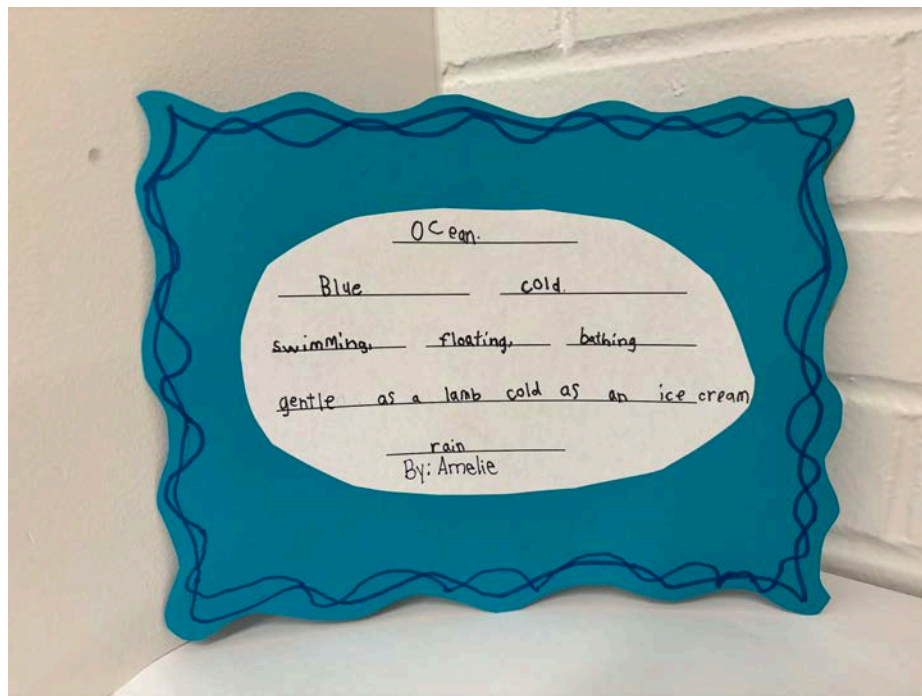 Ocean.
Blue cold.
swimming, floating, bathing
gentle as a lamb cold as an ice cream
rain
By: Amelie